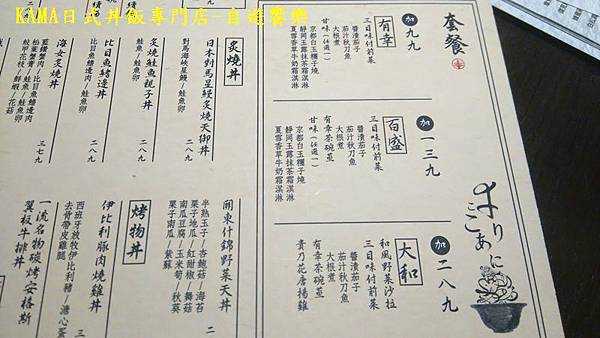 KAMA日式丼飯專門店-自遊饗樂
套餐
加 九九
有幸
三日味付前菜
醬漬茄子
茄汁秋刀魚
大根煮
甘味(任選一)
京都白玉糰子燒
靜岡玉露抹茶霜淇淋
夏雪香草牛奶霜淇淋
加 一三九
百盛
三日味付前菜
醬漬茄子
茄汁秋刀魚
大根煮
有幸茶碗蒸
甘味(任選一)
京都白玉糰子燒
靜岡玉露抹茶霜淇淋
夏雪香草牛奶霜淇淋
加 二八九
大和
和風野菜沙拉
三日味付前菜
醬漬茄子
茄汁秋刀魚
大根煮
有幸茶碗蒸
貴乃花唐揚雞
炙燒丼
日本對馬星鰻炙燒天御丼
對馬海峽星鰻/鮭魚卵
二八九
炙燒鮭魚親子丼
鮭魚/鮭魚卵
二八九
比目魚鰭邊丼
比目魚鰭邊肉/鮭魚卵
二八九
海女炙燒丼
三七九
烤物丼
關東什錦野菜天丼
半熟玉子/杏鮑菇/海苔
栗子地瓜/紅甜椒/舞菇
南瓜豆腐/玉米筍/秋葵
栗子南瓜/紫蘇
伊比利豚肉燒雞丼
西班牙放牧伊比利豬/溏心蛋
去骨帶皮雞腿
一流名物碳烤安格斯
翼板牛排丼